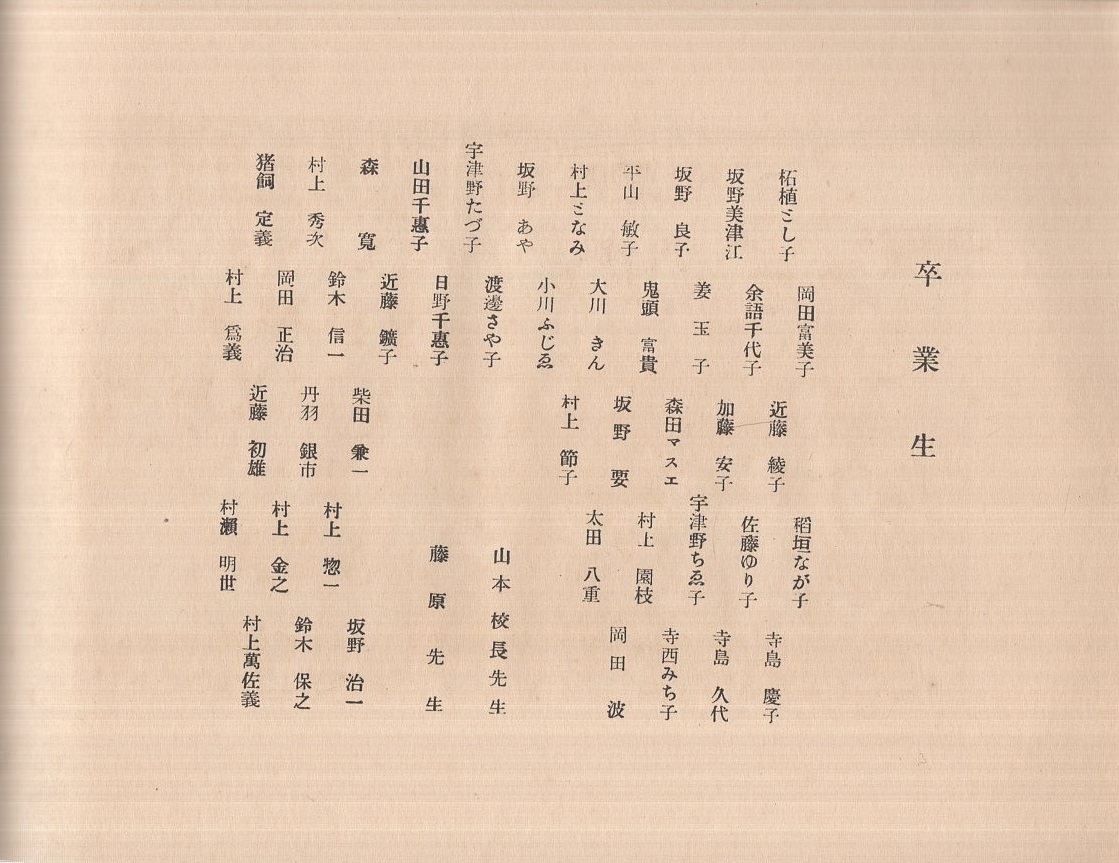 卒業生
岡田富美子
柘植とし子
近藤 綾子
稲垣なが子
寺島 慶子
坂野美津江
余語千代子
加藤 安子
佐藤ゆり子
寺島 久代
坂野 良子
姜 玉子
森田マスエ
宇津野ちゑ子
寺西みち子
平山 敏子
鬼頭 富貴
坂野 要
村上 園枝
岡田 波
村上となみ
大川 きん
村上 節子
太田 八重
坂野 あや
小川ふじゑ
宇津野たづ子
渡邊さや子
山本校長先生
山田千惠子
日野千惠子
藤原先生
森 寬
近藤 鑛子
柴田 兼一
村上 惣一
坂野 治一
村上 秀次
鈴木 信一
丹羽 銀市
村上 金之
鈴木 保之
猪飼 定義
岡田 正治
近藤 初雄
村瀬 明世
村上萬佐義
村上 爲義